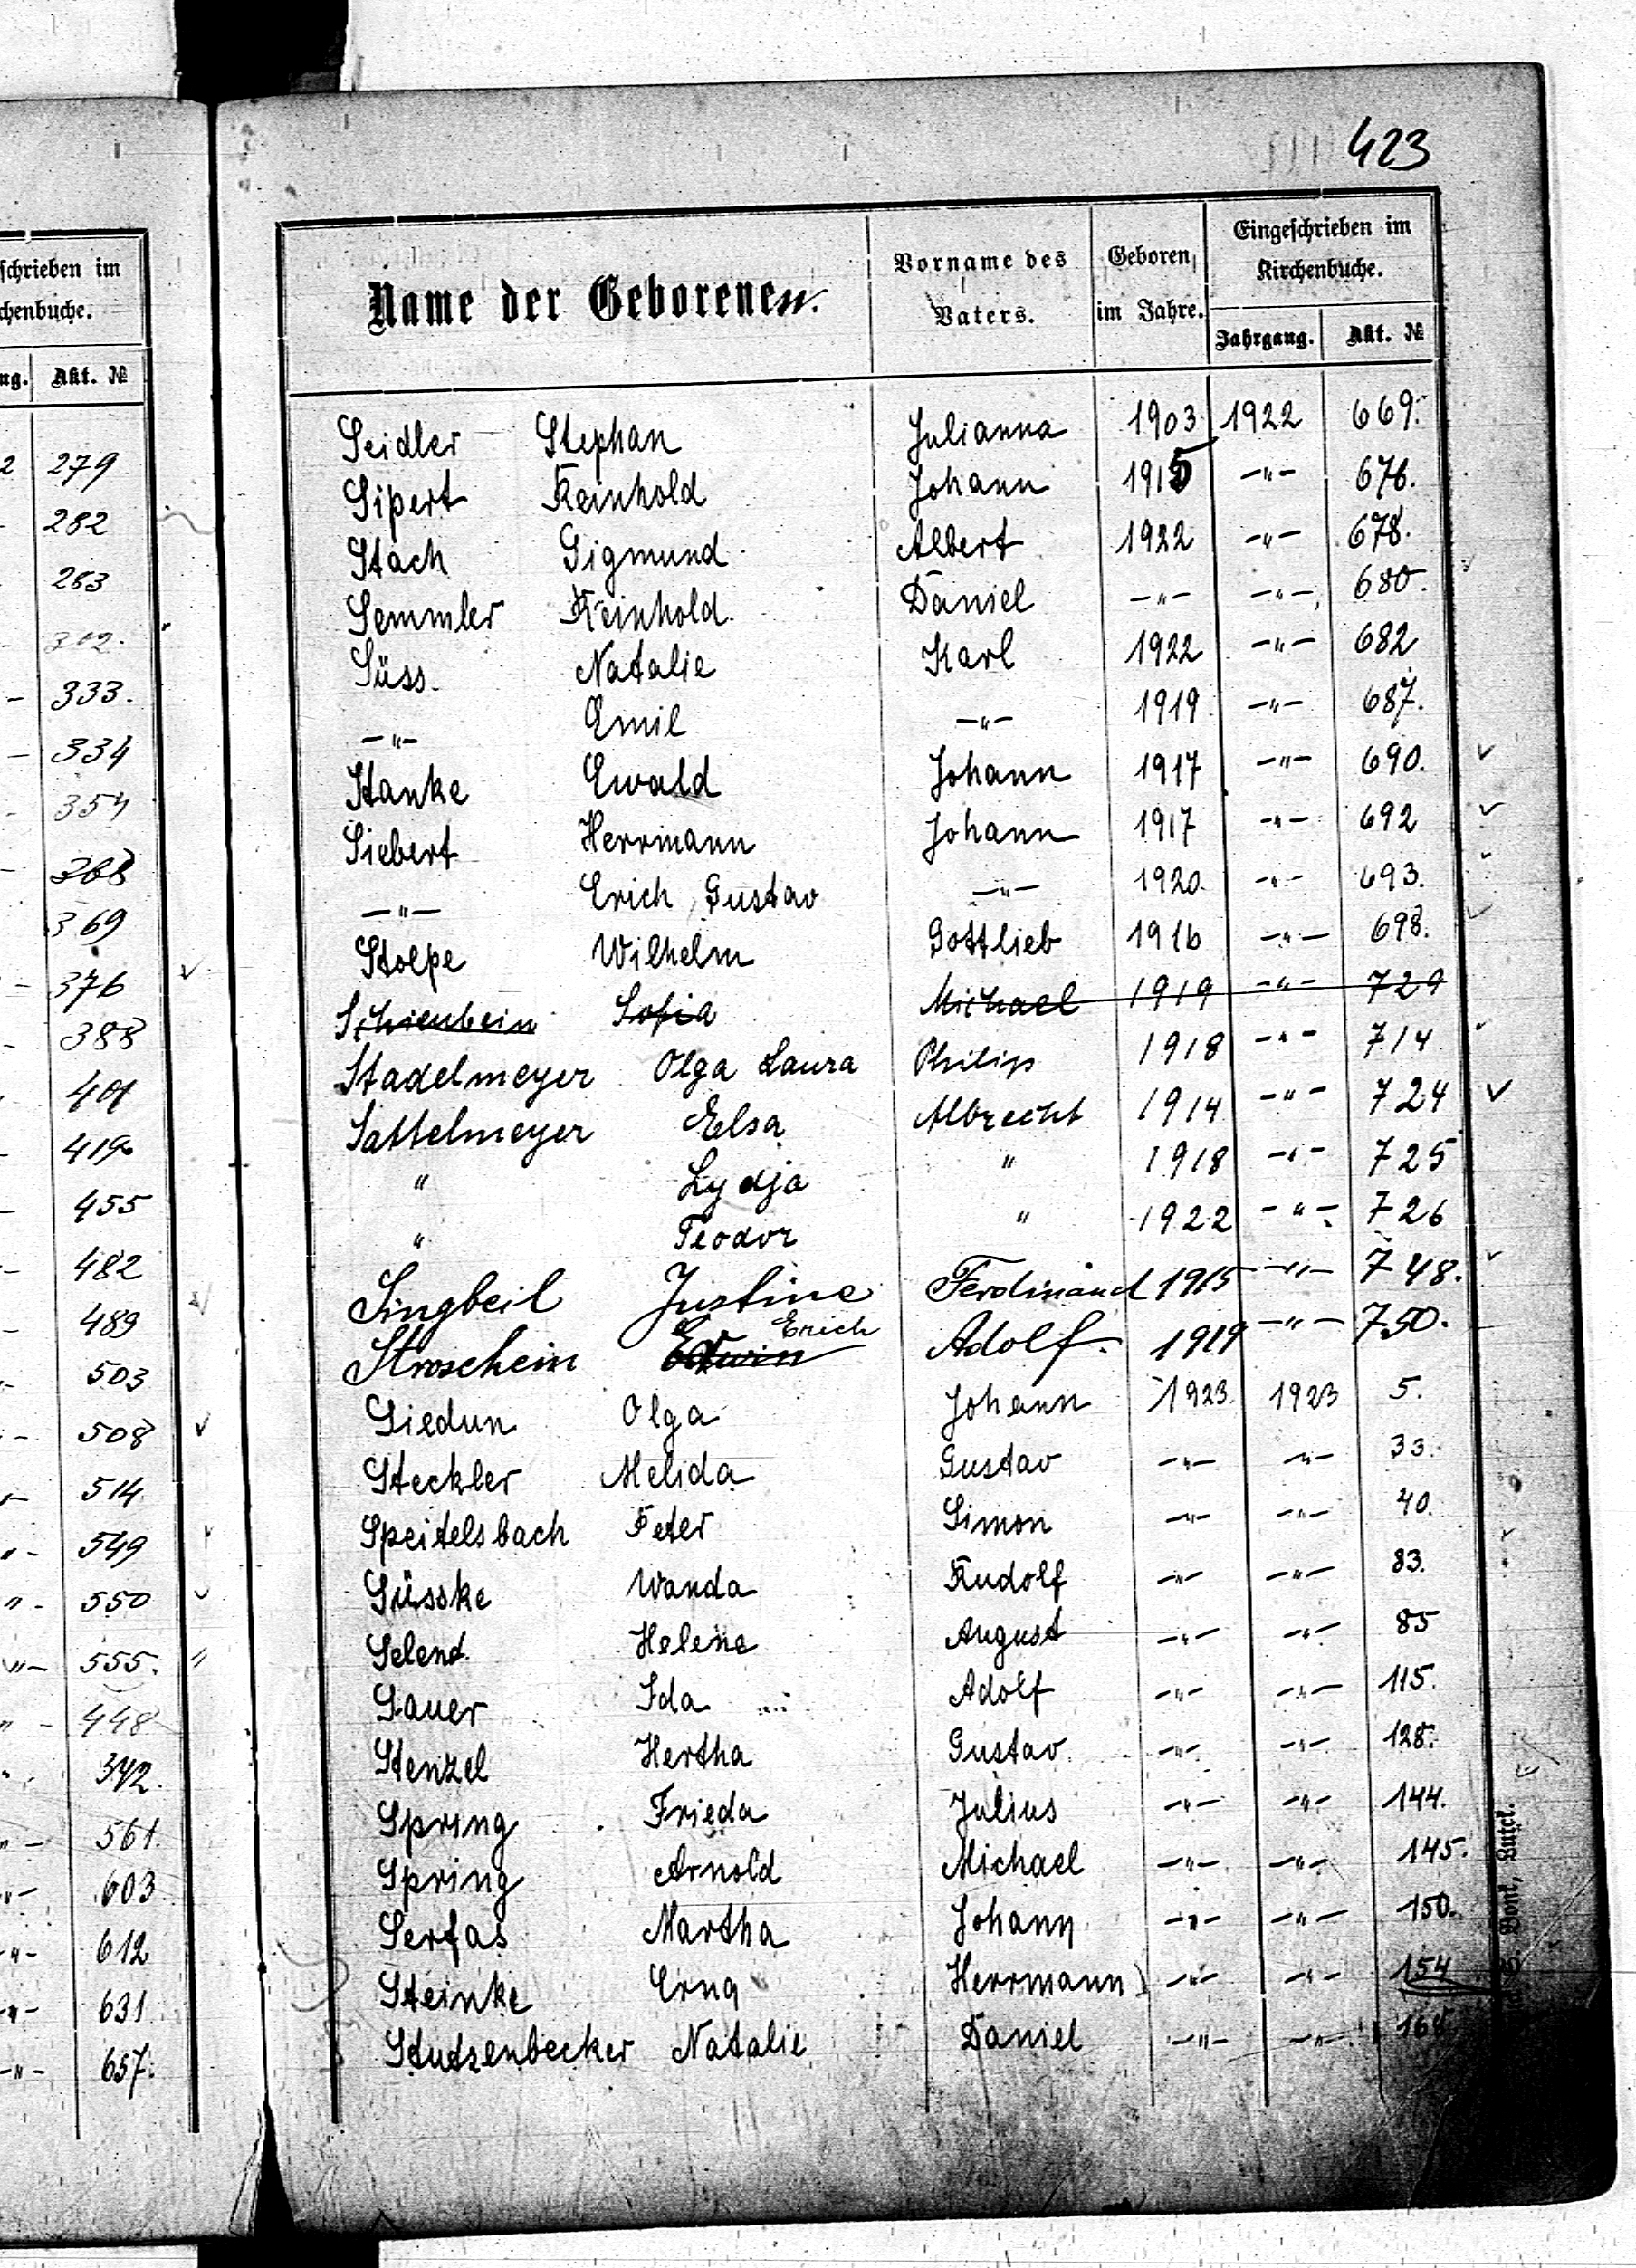 schrieben im
chenbuche.
ng. Akt. №
2 279
282
283
302.
– 333.
– 334
- 354
- 368
369
- 376
- 388
401
419
455
– 482
– 489
503
- 508
514
"- 549
"- 550
"- 555. "
" - 448
342.
" – 561.
"- 603
-"- 612
-"- 631
-"- 657.
423
Name der Geborenen.
Vorname des Vaters.
Geboren im Jahre.
Eingeschrieben im Kirchenbuche.
Jahrgang. Akt. №
Seidler Stephan Julianna 1903 1922 669.
Sipert Reinhold Johann 1915 -"- 676.
Stach Sigmund Albert 1922 -"- 678.
Semmler Reinhold Daniel -"- -"- 680.
Süss. Natalie Karl 1922 -"- 682
-"- Emil -"- 1919 -"- 687.
Stanke Ewald Johann 1917 -"- 690.
Siebert Herrmann Johann 1917 -"- 692
-"- Erich Gustav -"- 1920 -"- 693.
Stolpe Wilhelm Gottlieb 1916 -"- 698.
Schienbein Sofia Michael 1919 -"- 729
Stadelmeyer Olga Laura Philip 1918 -"- 714
Sattelmeyer Elsa Albrecht 1914 -"- 724
" Lydja " 1918 -"- 725
" Teodor " 1922 -"- 726
Singbeil Justine Ferdinand 1915 -"- 748.
Stroschein Edwin Erich Adolf. 1919 -"- 750.
Siedun Olga Johann 1923 1923 5.
Steckler Melida Gustav -"- -"- 33.
Speitelsbach Peter Simon -"- -"- 40.
Süsske Wanda Rudolf -"- -"- 83.
Selend. Helene August -"- -"- 85
Sauer Ida Adolf -"- -"- 115.
Stenzel Hertha Gustav -"- -"- 128.
Spring Frieda Julius -"- -"- 144.
Spring Arnold Michael -"- -"- 145.
Serfas Martha Johann -"- -"- 150.
Steinke Erna Herrmann -"- -"- 154
Stutzenbecker Natalie Daniel -"- -"-